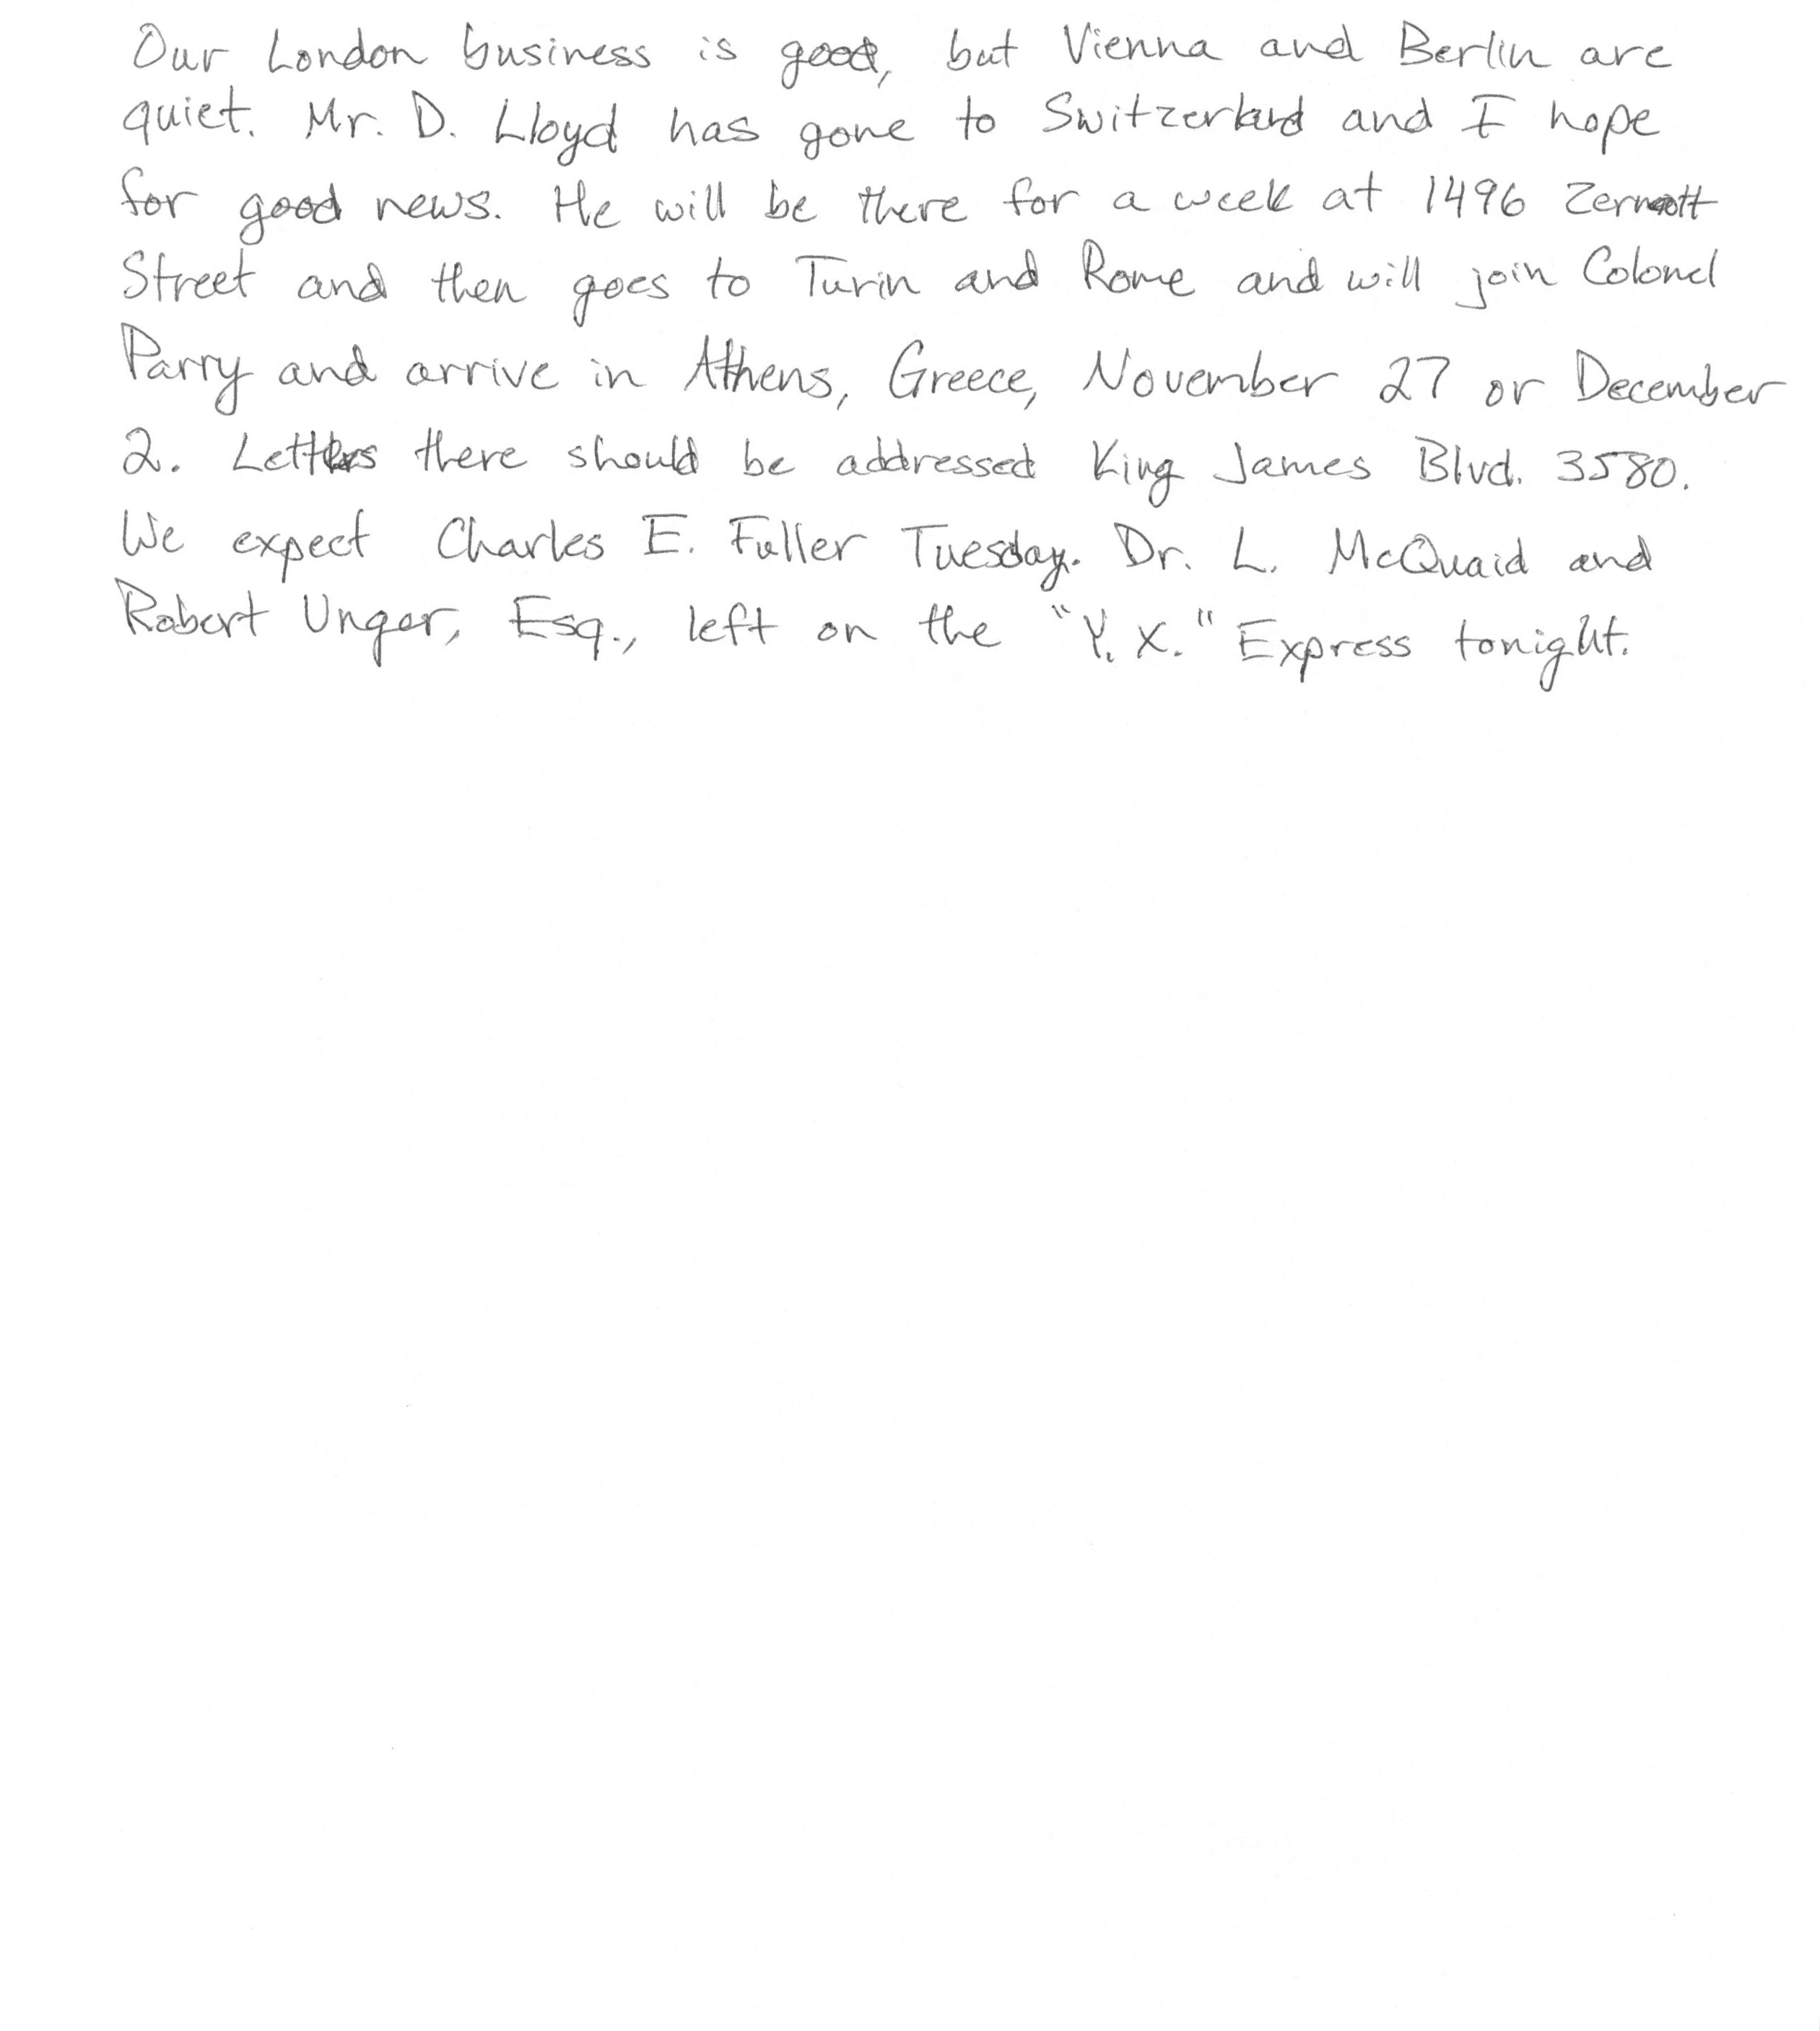 Our London business is good, but Vienna and Berlin are
quiet. Mr. D. Lloyd has gone to Switzerland and I hope
for good news. He will be there for a week at 1496 Zermott
Street and then goes to Turin and Rome and will join Colonel
Parry and arrive in Athens, Greece, November 27 or December
2. Letters there should be addressed King James Blvd. 3580.
We expect Charles E. Fuller Tuesday. Dr. L. McQuaid and
Robert Unger, Esq., left on the "Y. X." Express tonight.